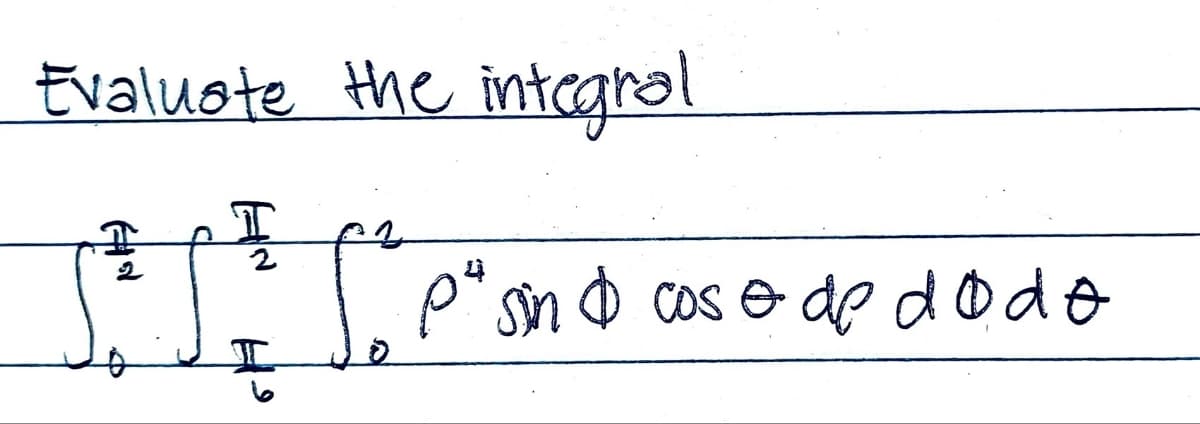 Evaluate the integral
∫₀^{π/2} ∫_{π/6}^{π/2} ∫₀² ρ⁴ sin ϕ cos θ dρ dϕ dθ